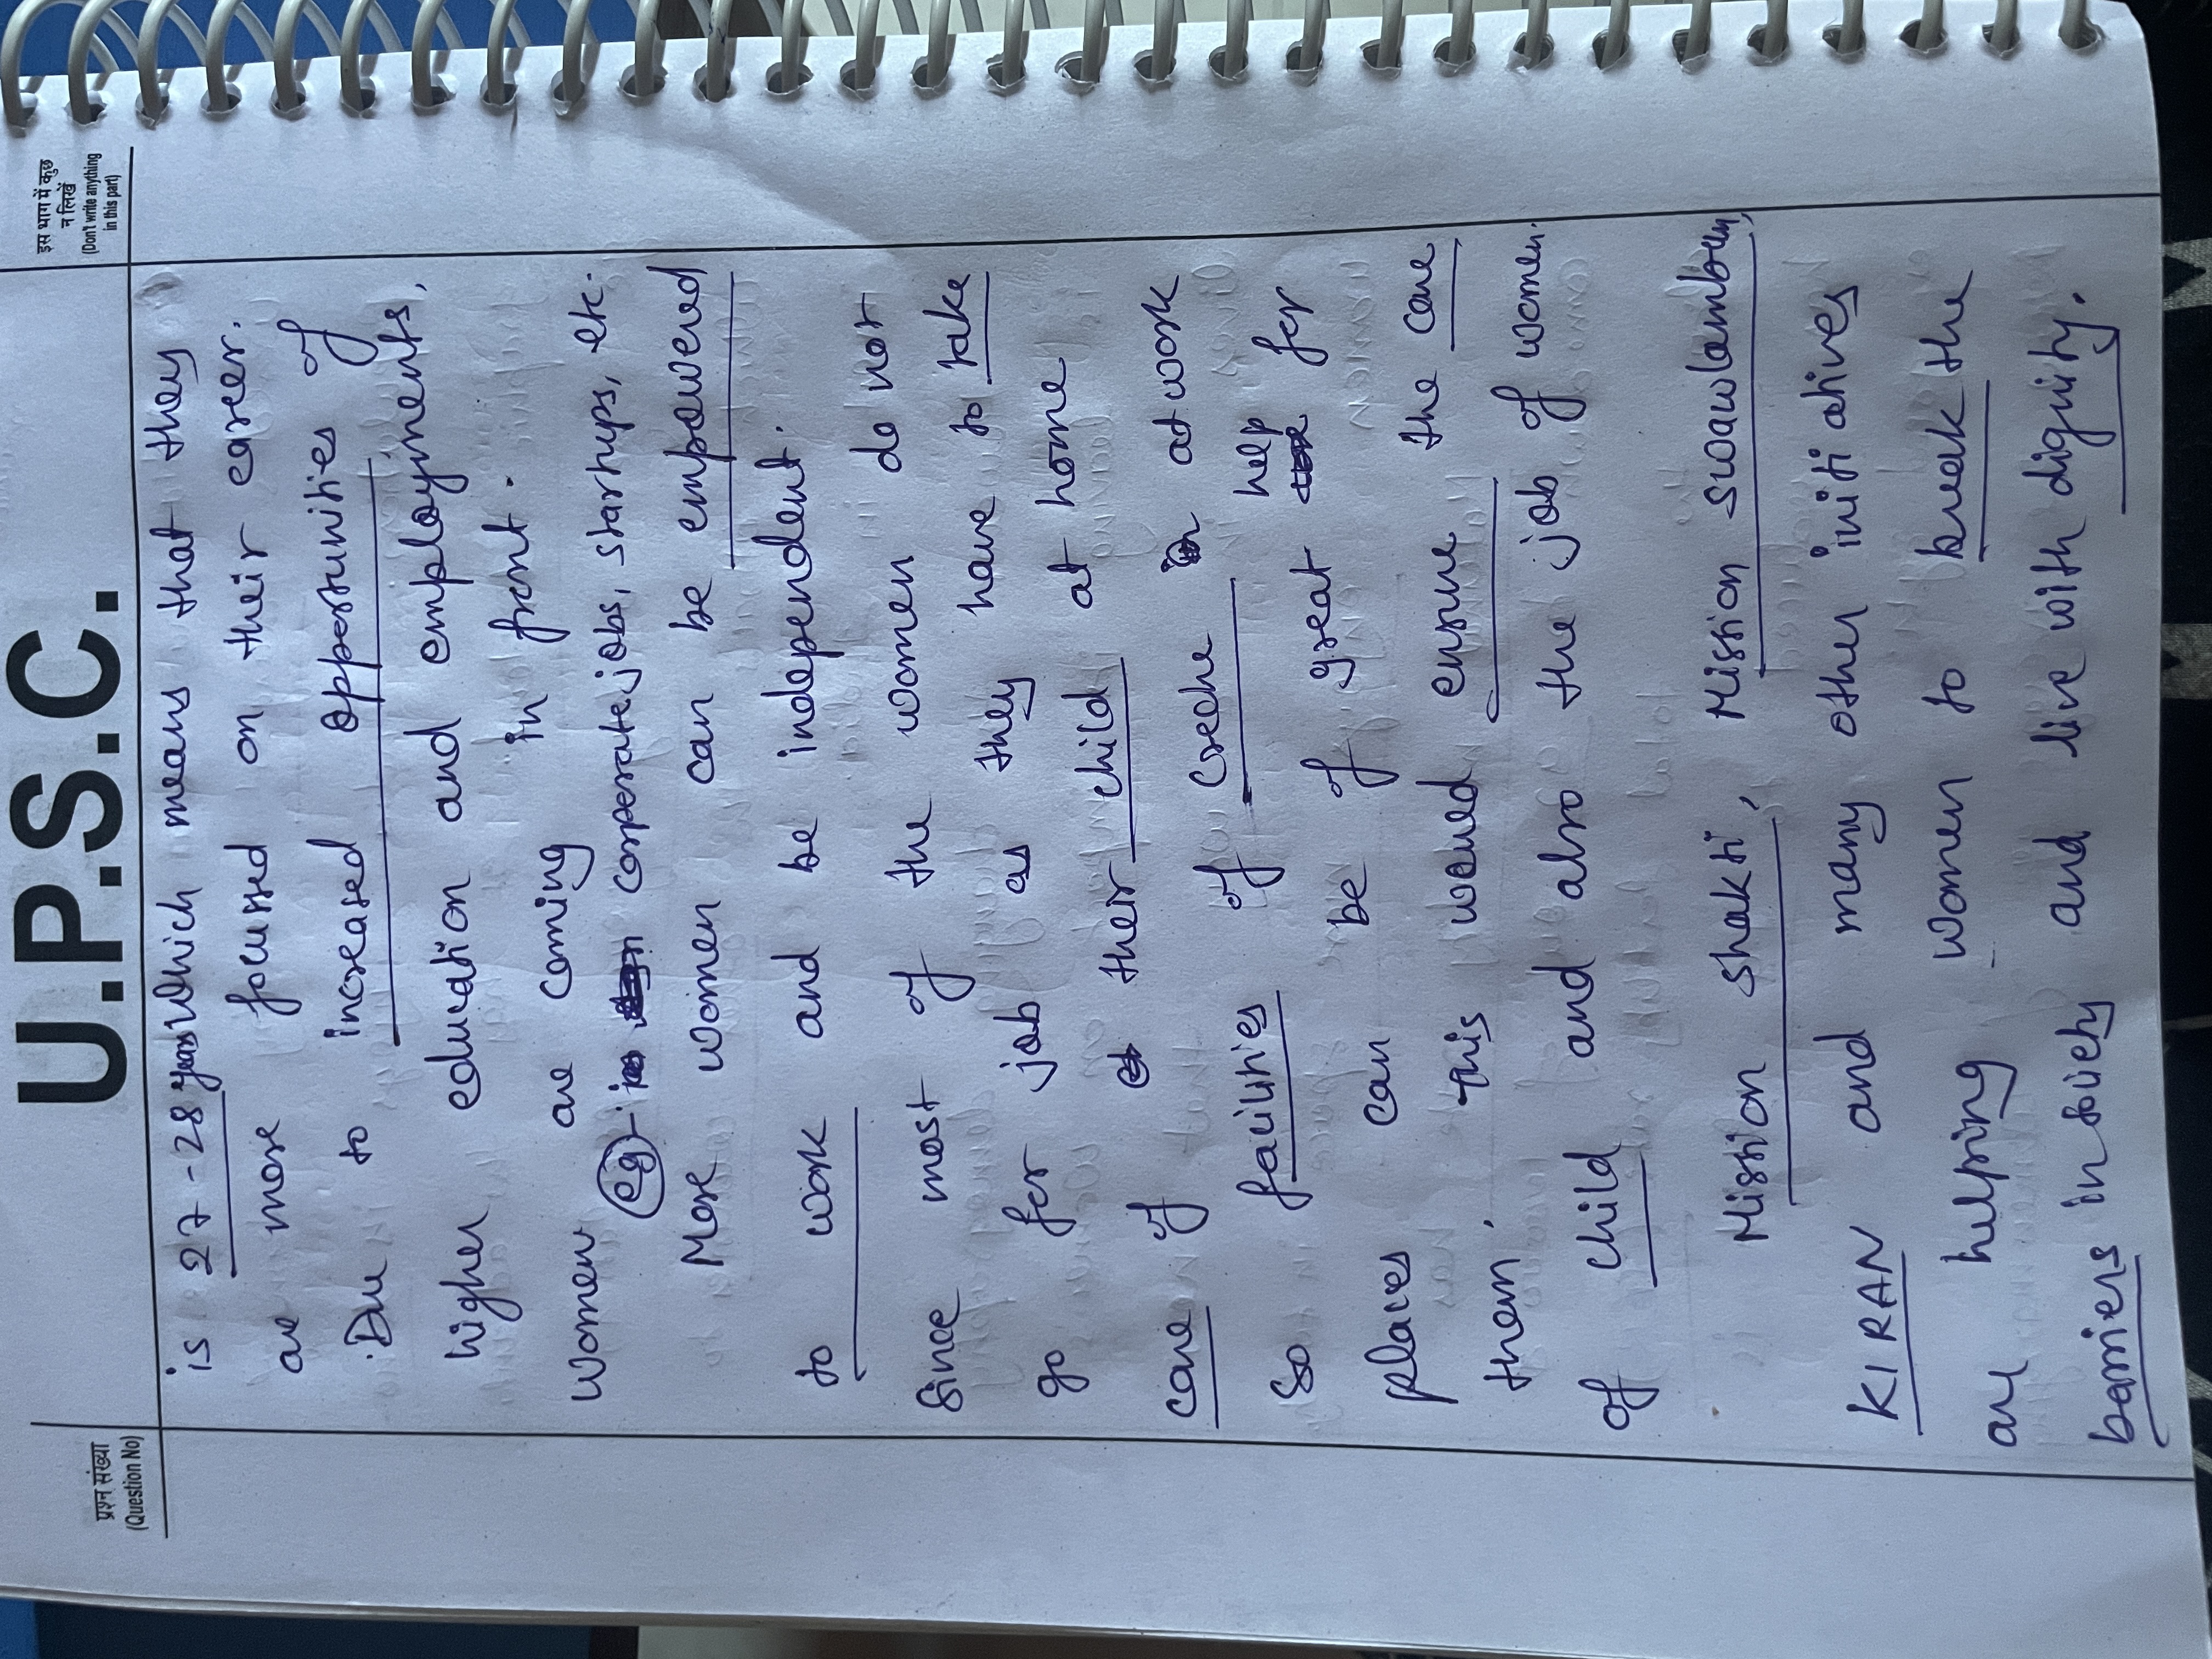 U.P.S.C.
प्रश्न संख्या
(Question No)
इस भाग में कुछ
न लिखें
(Don't write anything
in this part)
is 27-28 years which means that they
are more focussed on their career.
Due to increased opportunities of
higher education and employments,
women are coming in front.
eg - corporate jobs, startups, etc.
More women can be empowered
to work and be independent.
Since most of the women do not
go for job as they have to take
care of their child at home
So facilities of creche at work
places can be of great help for
them. This would ensure the care
of child and also the job of women.
Mission Shakti, Mission Swawlamban,
KIRAN and many other initiatives
are helping women to break the
barriers in society and live with dignity.